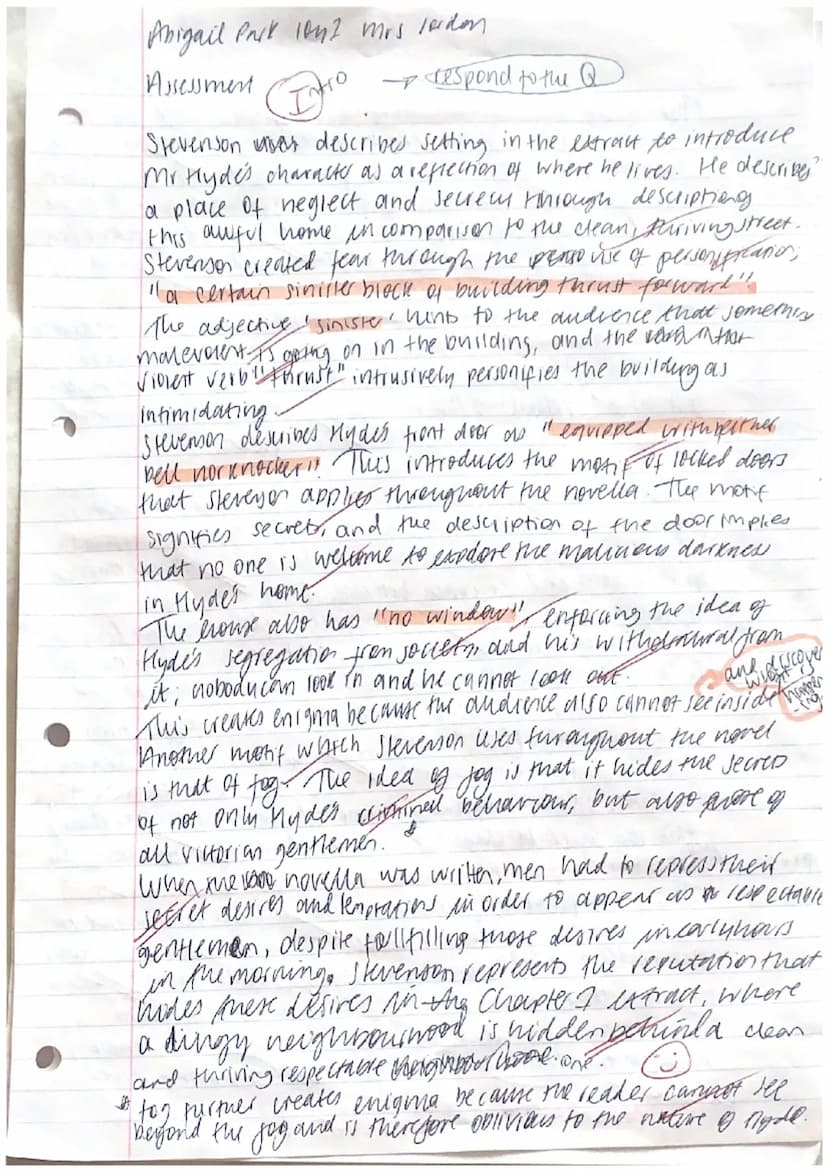 Abigail Park 10y1 Mrs
Assessment Intro → respond to the Q
Stevenson describes setting in the extract to introduce
Mr Hyde's character as a reflection of where he lives. He describes
a place of neglect and secrecy through description of
this awful home in comparison to the clean, thriving street.
Stevenson created fear through the use of personification;
"a certain sinister block of building thrust forward".
The adjective 'sinister' hints to the audience that something
malevolent is going on in the building, and the
violent verb "thrust" intrusively personifies the building as
intimidating.
Stevenson describes Hyde's front door as "equipped with neither
bell nor knocker". This introduces the motif of locked doors
that Stevenson applies throughout the novella. The motif
signifies secrets, and the description of the door implies
that no one is welcome to explore the malicious darkness
in Hyde's home.
The house also has "no window", enforcing the idea of
Hyde's segregation from society and his withdrawal from
it; nobody can look in and he cannot look out.
This creates enigma because the audience also cannot see inside
and discover what is happening
Another motif which Stevenson uses throughout the novel
is that of fog. The idea of fog is that it hides the secrets
of not only Hyde's criminal behaviour, but also of
all victorian gentlemen.
When the novella was written, men had to repress their
secret desires and temptations in order to appear as respectable
gentlemen, despite fullfilling those desires in early hours
in the morning. Stevenson represents the reputation that
hides these desires in the Chapter 1 extract, where
a dingy neighbourhood is hidden behind a clean
and thriving respectable one.
Fog further creates enigma because the reader cannot see
beyond the fog and is therefore oblivious to the nature of Hyde.